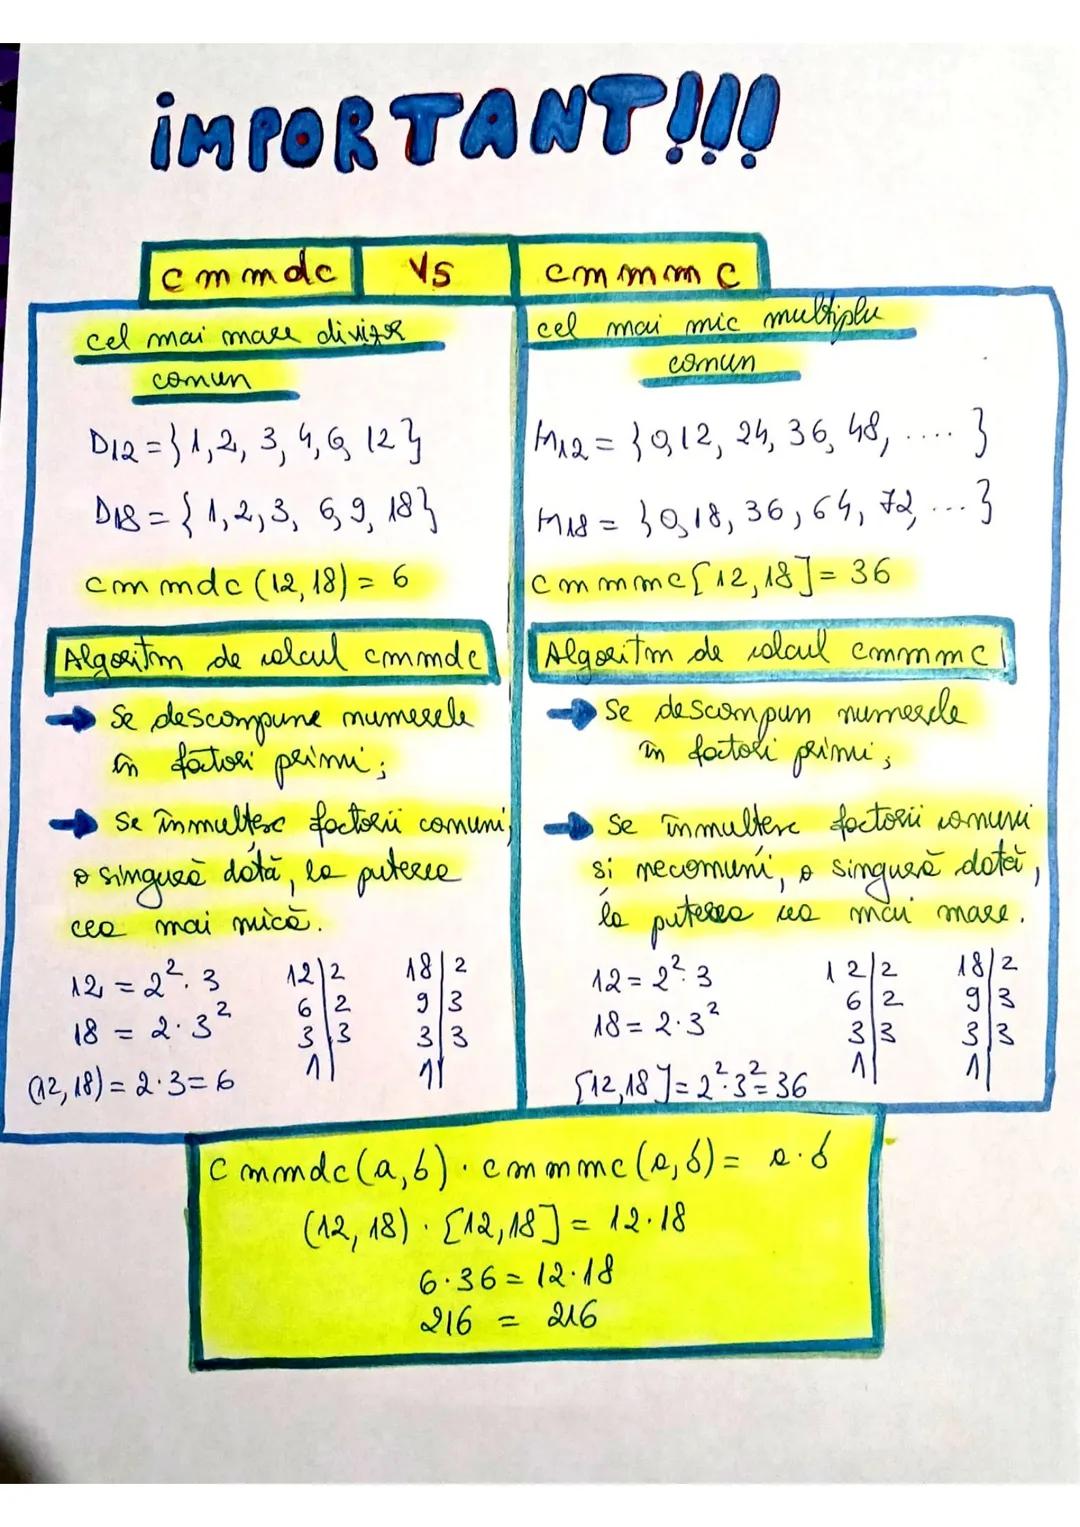 İMPORTANT!!!
cmmdc vs cmmmc
cel mai mare divizor
comun
D12 = {1, 2, 3, 4, 6, 12}
D18 = {1, 2, 3, 6, 9, 18}
cmmdc (12, 18) = 6
Algoritm de calcul cmmdc
→ Se descompune numerele
în factori primi;
→ Se înmulțesc factorii comuni,
o singură dată, la puterea
cea mai mică.
12 = 2². 3
18 = 2·3²
12|2
6|2
3|3
1|
18|2
9|3
3|3
1|
(12, 18) = 2·3 = 6
cel mai mic multiplu
comun
M12 = {0, 12, 24, 36, 48, ....}
M18 = {0, 18, 36, 64, 72, ...}
cmmmc [12, 18] = 36
Algoritm de calcul cmmmc
→ Se descompun numerele
în factori primi;
→ Se înmulțesc factorii comuni
si necomuni, o singură dată,
la puterea cea mai mare.
12 = 2². 3
18 = 2·3²
12|2
6|2
3|3
1|
18|2
9|3
3|3
1|
[12, 18] = 2²·3² = 36
cmmdc (a, b) · cmmmc (a, b) = a·b
(12, 18) · [12, 18] = 12·18
6·36 = 12·18
216 = 216